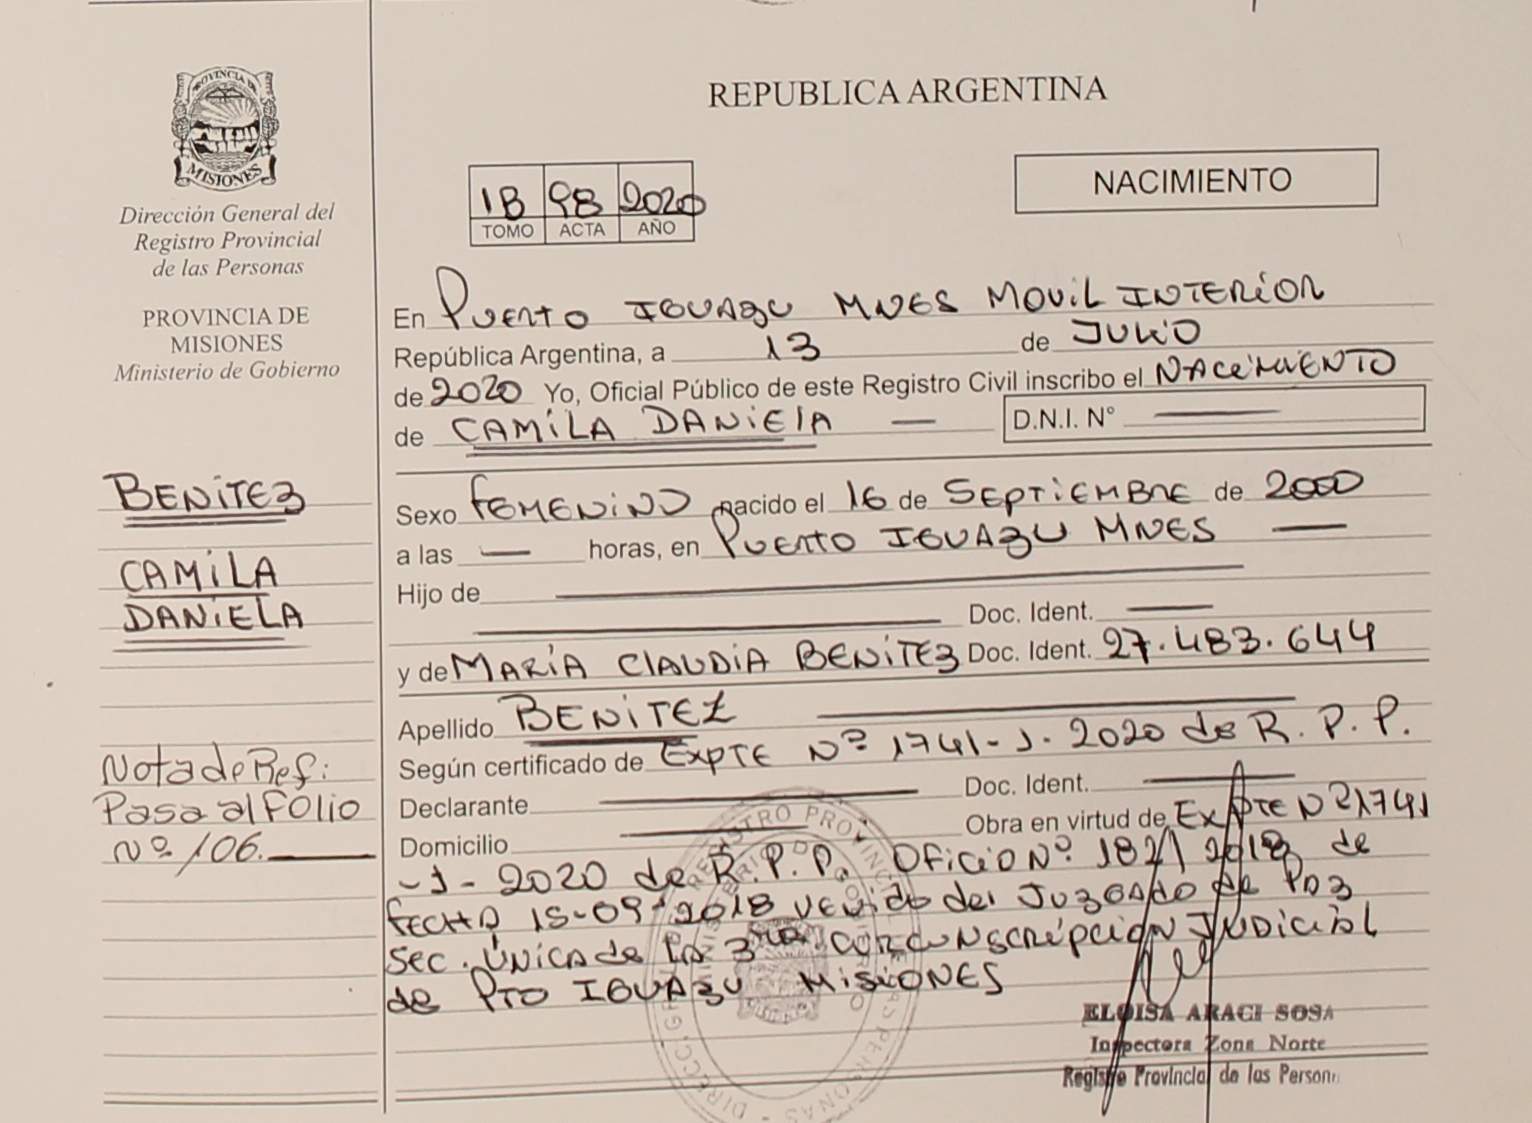 PROVINCIA DE
MISIONES
Dirección General del
Registro Provincial
de las Personas
PROVINCIA DE
MISIONES
Ministerio de Gobierno
BENITEZ
CAMILA
DANIELA
Nota de Ref:
Pasa al FOlio
Nº 106.
REPUBLICA ARGENTINA
1B 98 2020
TOMO ACTA AÑO
NACIMIENTO
En PUERTO IGUAZU MNES MOVIL INTERIOR
República Argentina, a 13 de JULIO
de 2020 Yo, Oficial Público de este Registro Civil inscribo el NACIMIENTO
de CAMILA DANIELA — D.N.I. N° —
Sexo FEMENINO nacido el 16 de SEPTIEMBRE de 2000
a las — horas, en PUERTO IGUAZU MNES —
Hijo de —
— Doc. Ident. —
y de MARÍA CLAUDIA BENITEZ Doc. Ident. 27.483.644
Apellido BENITEZ —
Según certificado de EXPTE Nº 1741-J-2020 de R.P.P.
Declarante — Doc. Ident. —
Domicilio — Obra en virtud de EXPTE Nº 1741
-J- 2020 de R.P.P. OFICIO Nº 182/2018 de
FECHA 15-09-2018 venido del JUZGADO de PAZ
SEC. ÚNICA de LA 3ra CIRCUNSCRIPCIÓN JUDICIAL
de PTO IGUAZU MISIONES
ELOISA ARACI SOSA
Inspectora Zona Norte
Registro Provincial de las Person